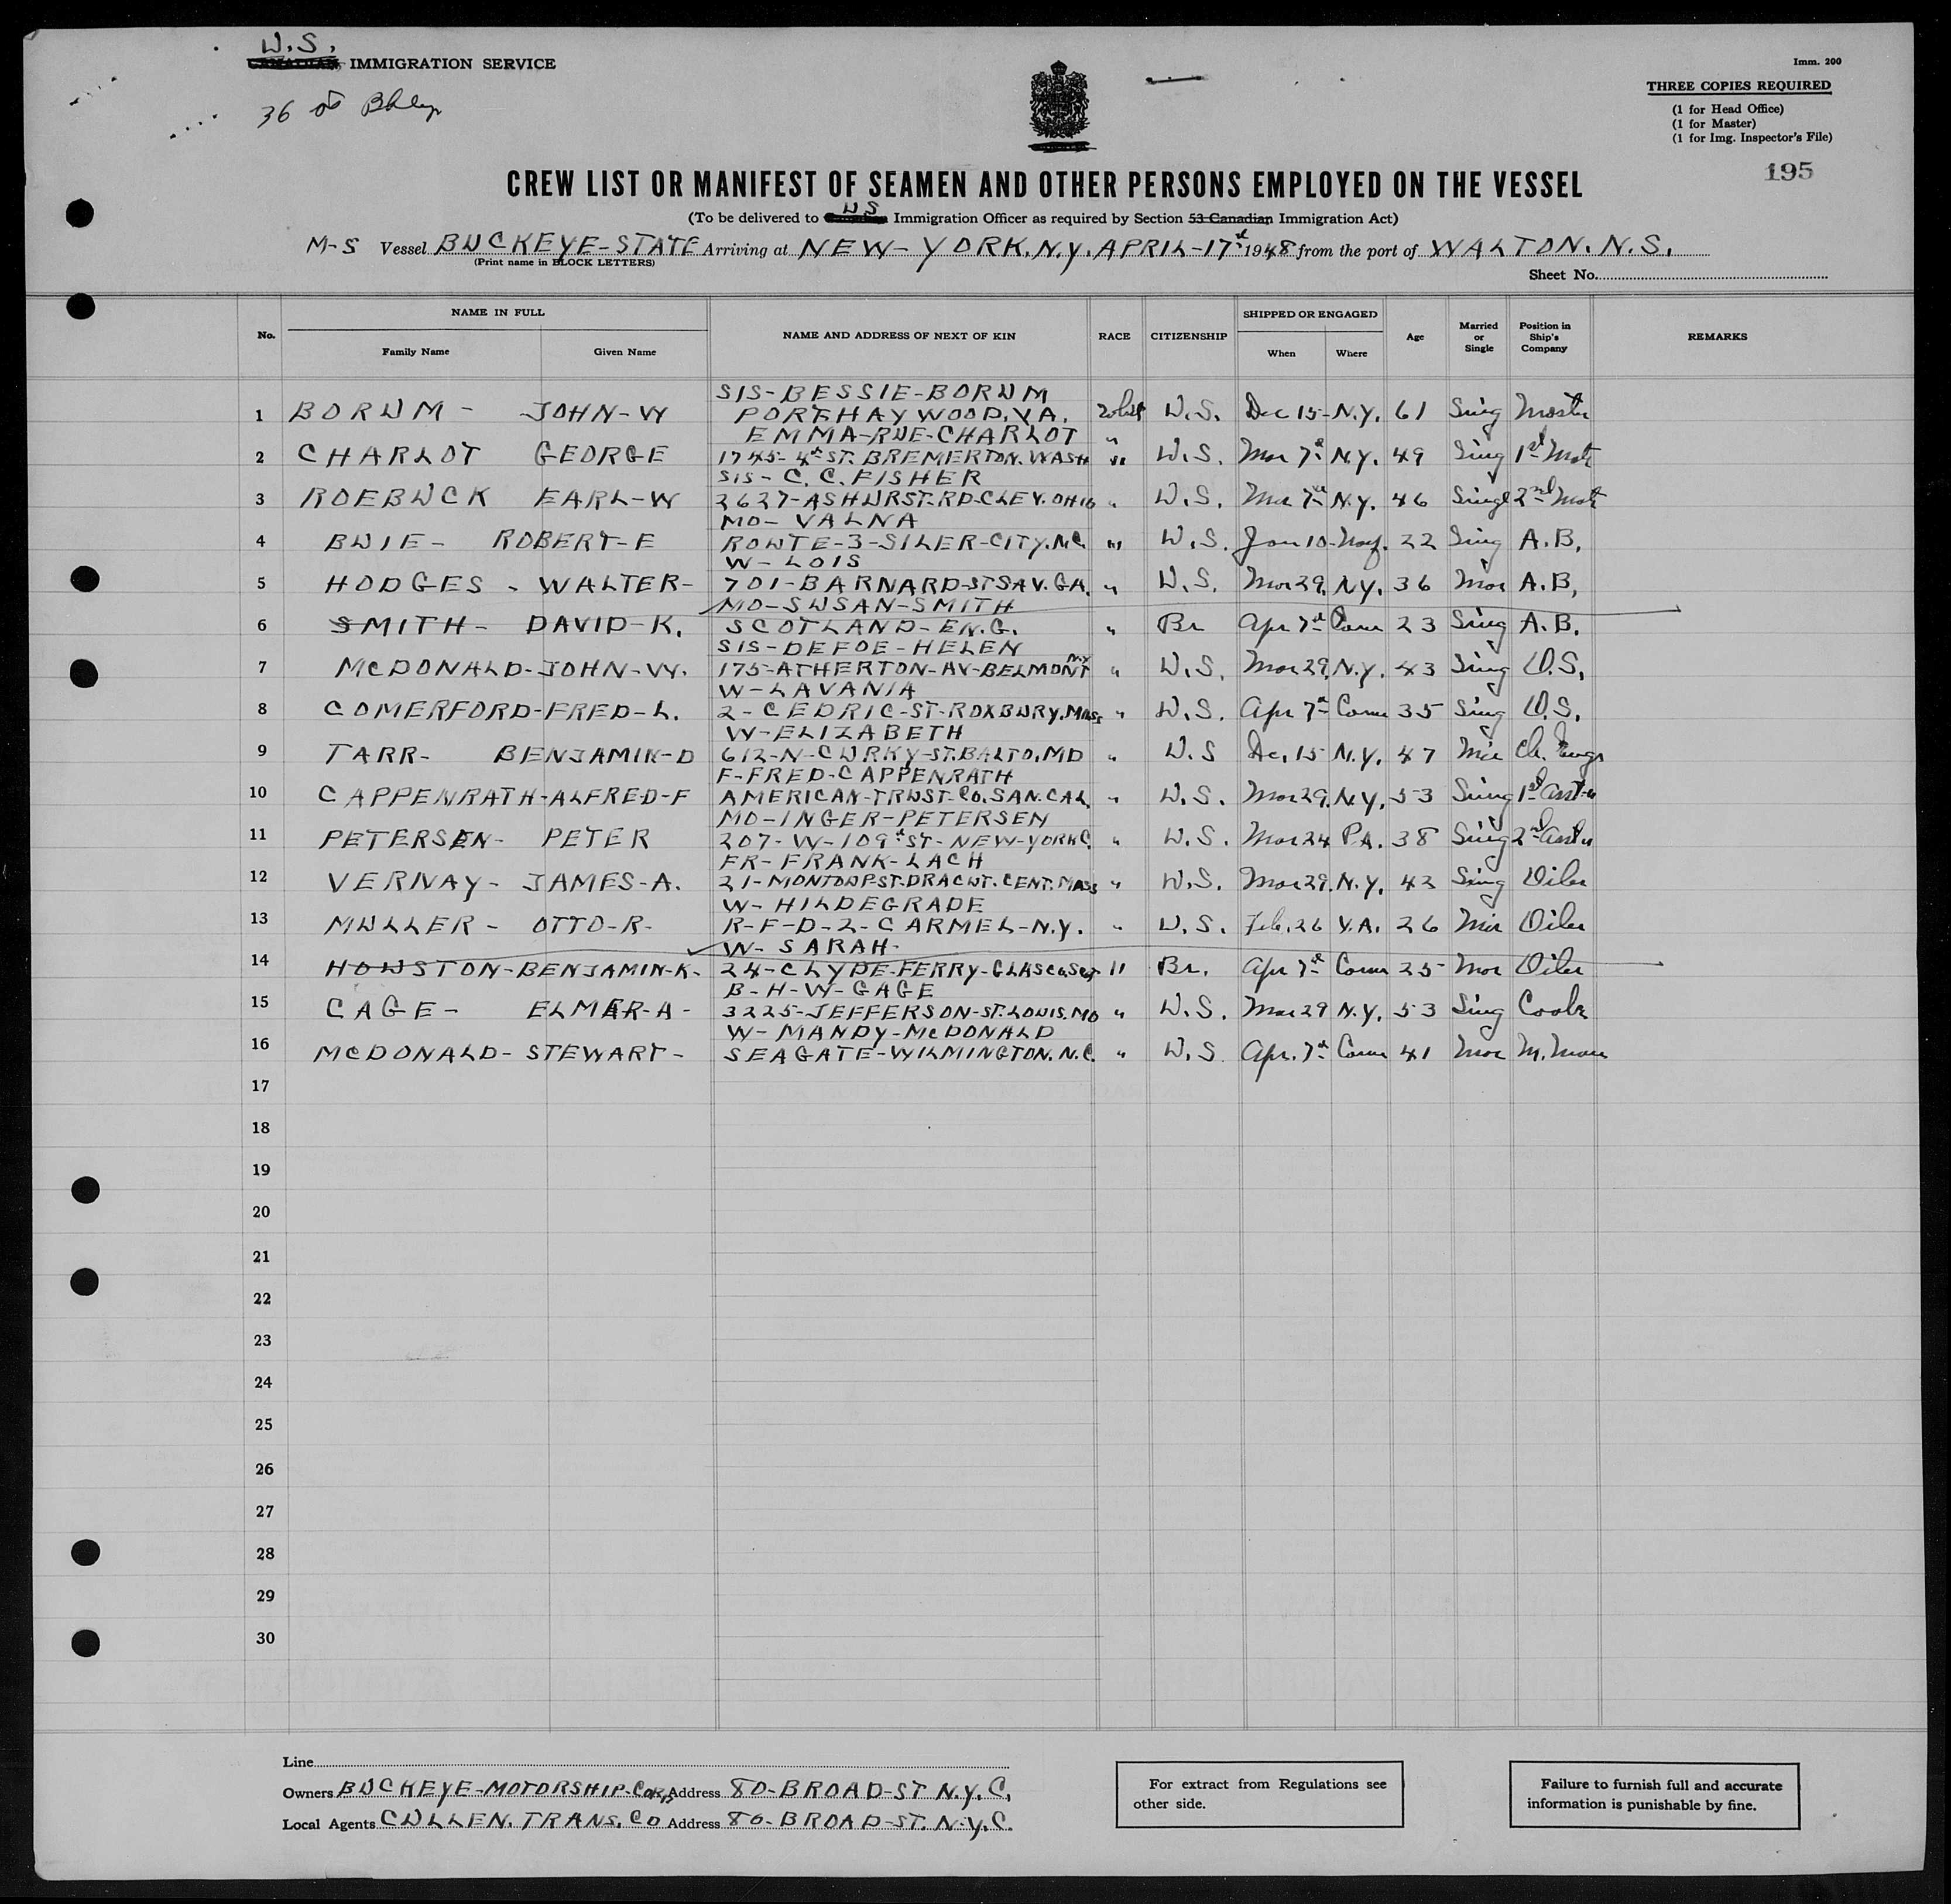 U.S.
CANADIAN IMMIGRATION SERVICE
Imm. 200
THREE COPIES REQUIRED
(1 for Head Office)
(1 for Master)
(1 for Img. Inspector's File)
36
195
CREW LIST OR MANIFEST OF SEAMEN AND OTHER PERSONS EMPLOYED ON THE VESSEL
(To be delivered to U S Immigration Officer as required by Section 53 Canadian Immigration Act)
M-S Vessel BUCKEYE-STATE Arriving at NEW-YORK, N.Y. APRIL-17th 1948 from the port of WALTON. N.S.
(Print name in BLOCK LETTERS)
Sheet No.
No. NAME IN FULL Family Name Given Name NAME AND ADDRESS OF NEXT OF KIN RACE CITIZENSHIP SHIPPED OR ENGAGED When Where Age Married or Single Position in Ship's Company REMARKS
SIS-BESSIE-BORUM
1 BORUM - JOHN-W PORT-HAYWOOD, VA. U.S. Dec 15- N.Y. 61 Sing Master
EMMA-RUE-CHARLOT "
2 CHARLOT GEORGE 1745-4th ST. BREMERTON. WASH " U.S. Mar 7th N.Y. 49 Sing 1st Mate
SIS- C. C. FISHER
3 ROEBUCK EARL-W 2627-ASHURST-RD-CLEV. OHIO " U.S. Mar 7th N.Y. 46 Singl 2nd Mate
MO- VALNA
4 BUIE- ROBERT-E ROUTE-3-SILER-CITY. N.C. " U.S. Jan 10- 22 Sing A.B.
W- LOIS
5 HODGES - WALTER- 701-BARNARD-ST SAV. GA. " U.S. Mar 29, N.Y. 36 Mar A.B.
MO-SUSAN-SMITH
6 SMITH- DAVID-K. SCOTLAND-EN.G. " Br Apr 7th Conn 23 Sing A.B.
SIS-DEFOE-HELEN
7 McDONALD-JOHN-W. 175-ATHERTON-AV-BELMONT N.Y " U.S. Mar 29, N.Y. 43 Sing O.S.
W-LAVANIA
8 COMERFORD-FRED-L. 2-CEDRIC-ST-ROXBURY, Mass " U.S. Apr 7th Conn 35 Sing O.S.
W-ELIZABETH
9 TARR- BENJAMIN-D 612-N-CURKY-ST. BALTO, MD " U.S Dec, 15 N.Y. 47 Mar Ch. Engr
F-FRED-CAPPENRATH
10 CAPPENRATH-ALFRED-F AMERICAN-TRUST-Co. SAN. CAL. " U.S. Mar 29, N.Y. 53 Sing 1st asst-"
MO-INGER-PETERSEN
11 PETERSEN- PETER 207-W-109th ST-NEW-YORK C. " U.S. Mar 24 P.A. 38 Sing 2nd asst "
FR- FRANK-LACH
12 VERNAY- JAMES-A. DRACUT. CENT. MASS " U.S. Mar 29, N.Y. 42 Sing Oiler
W- HILDEGRADE
13 MULLER - OTTO-R- R-F-D-2-CARMEL-N.Y. " U.S. Feb, 26 V.A. 26 Mar Oiler
W- SARAH-
14 HOUSTON-BENJAMIN-K- 24-CLYDE-FERRY-GLASCO, Scot 11 Br. Apr 7th Conn 25- Mar Oiler
B-H-W-GAGE
15 CAGE- ELMER-A- 3225-JEFFERSON-ST. LOUIS. MO " U.S. Mar 29 N.Y. 53 Sing Cook
W- MANDY-McDONALD
16 McDONALD- STEWART- SEAGATE-WILMINGTON. N.C. " U.S Apr. 7th Conn 41 Mar M. Man
17
18
19
20
21
22
23
24
25
26
27
28
29
30
Line
Owners BUCKEYE-MOTORSHIP-Corp Address 80-BROAD-ST N.Y.C.
Local Agents CULLEN. TRANS. Co Address 80-BROAD-ST. N.Y.C.
For extract from Regulations see
other side.
Failure to furnish full and accurate
information is punishable by fine.